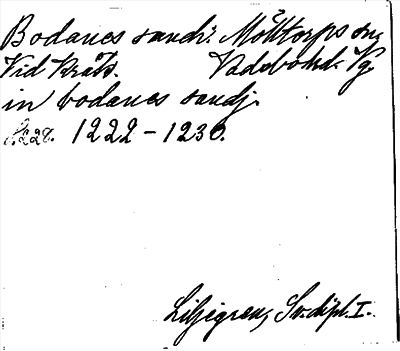 Bodanes sandr. Mölltorps sn,
Vid Kråk. Vadsbohd. Vg.
in bodanes sandj.
S. 228. 1222-1230.
Liljegren, Sv. dipl. I.